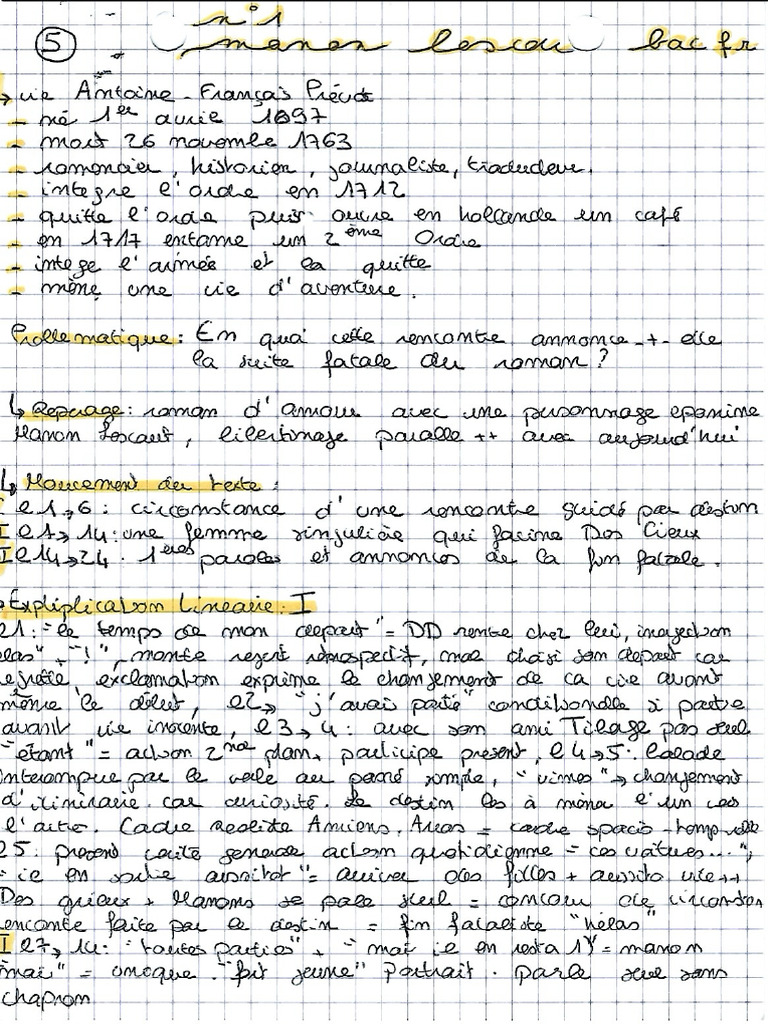 n°1
5 manon lescau bac fr
→ vie Antoine-François Prévost
- né 1er avrie 1697
- mort 26 novembre 1763
- romoncier, historien, journaliste, traducteur.
- integre l'ordre en 1712
- quitte l'ordre puis ouvre en hollande un café
- en 1717 entame un 2ème Ordre
- intege l'armée et la quitte
- mène une vie d'aventure.
Problematique: En quoi cette rencontre annonce-t-elle
la suite fatale du roman?
↳ Reperage: roman d'amour avec une personnage eponime
Manon Lescaut, libertinage paralle ++ avec aujourd'hui
↳ Mouvement du texte:
I l1→6: circonstance d'une rencontre guidé par destin
I l7→14: une femme singulière qui facine Des Grieux
I l14→24. 1eres paroles et annonces de la fin fatale.
Expliplication Lineaire: I
l1: "le temps de mon depart" = DD rentre chez lui, interjection
elas" + "!", montre regert retrospectif, mal choisi son depart car
regrette, exclamation exprime le changement de ca vie avant
même le début, l2→ "j'avais porté" conditionnelle si partie
avant vie inocente, l3→4: avec son ami Tiberge pas seul
"étant" = action 2nd plan, participe présent, l4→5: balade
interompue par le verbe au passé simple, "vimes" → changement
d'itinéraire car curiosité. Le destin les à mène l'un vers
l'autre. Cadre realiste Amiens, Arras = cadre spacio-temporelle
l5: present verité generale action quotidienne = ces voitures...",
"il en sortie aussitot" = arriver des filles + aussito vite++
Des grieux + Manons se parle seul = concour de circonstan
rencontre faite par le destin = fin fataliste "hélas"
I l7→14: "toutes parties" + "mai il en resta 1" = manon
"mai" = unoque. "fort jeune" Portrait. parle seul sans
chapron